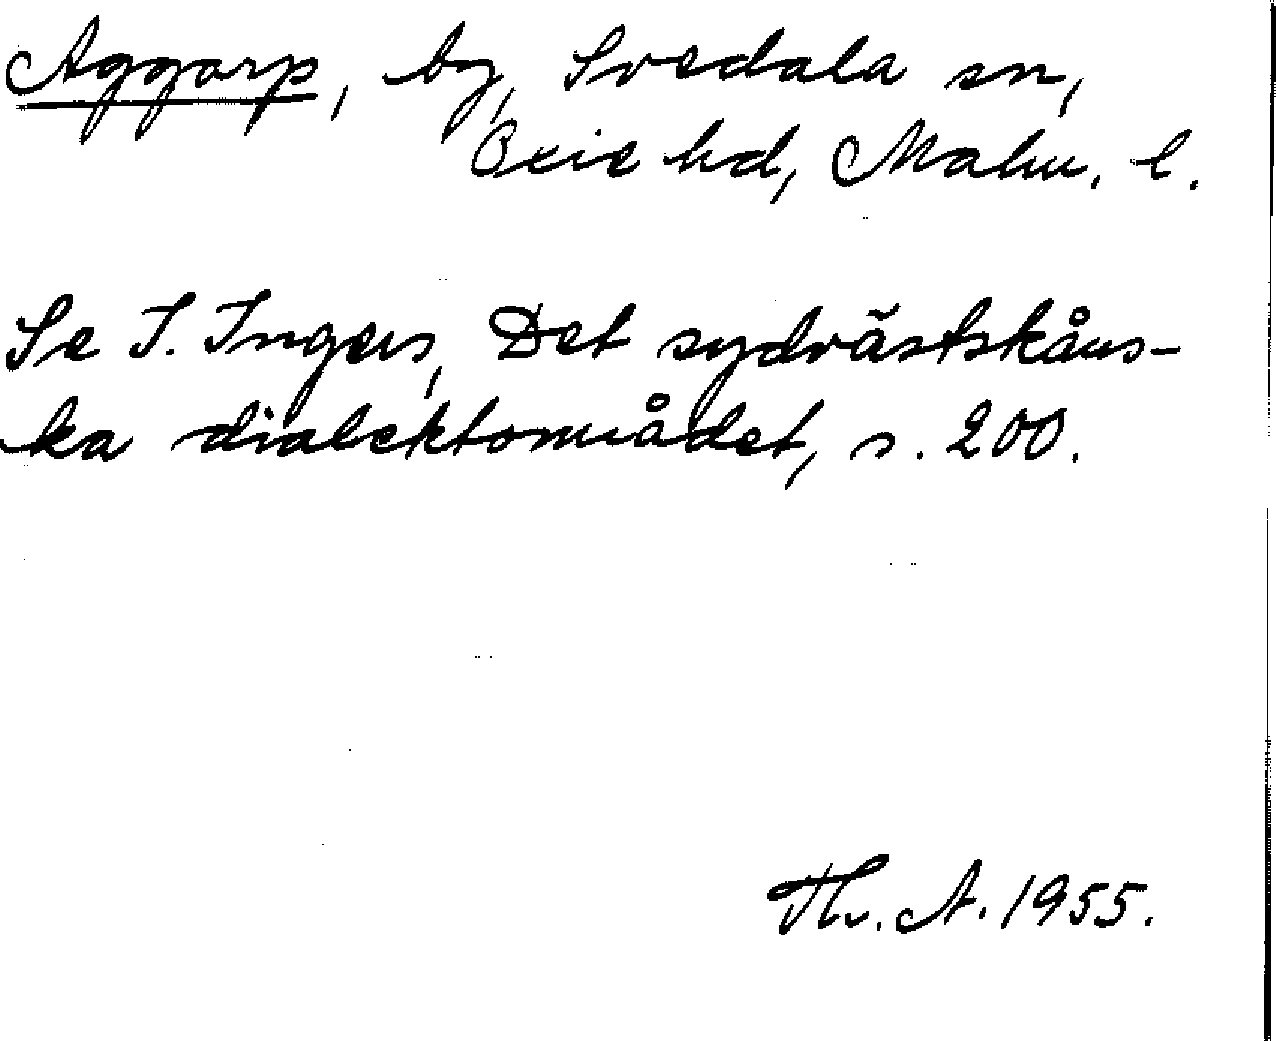 Aggarp, by, Svedala sn,
Oxie hd, Malm. l.
Se I. Ingers, Det sydvästskåns-
ka dialektområdet, s. 200.
Th. A. 1955.